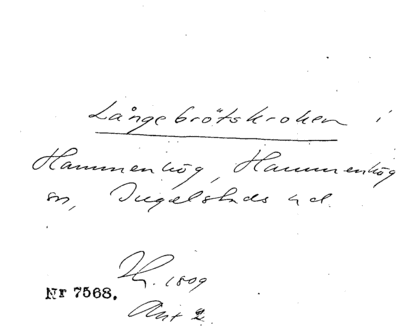 Långebrötskroken i
Hammenhög, Hammenhög
sn, Ingelstads hd.
1809
Nr 7568.
Akt 2